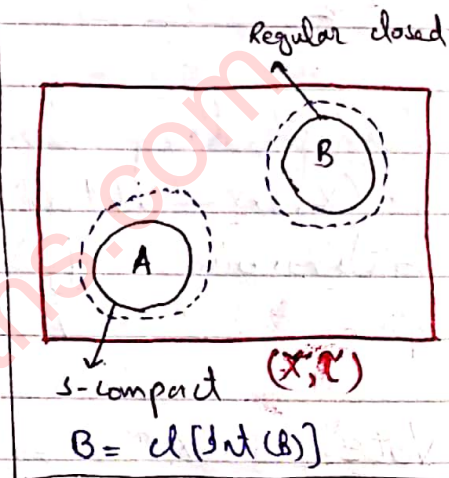 Regular closed
B
A
s-compact
(X, τ)
B = cl[Int(B)]